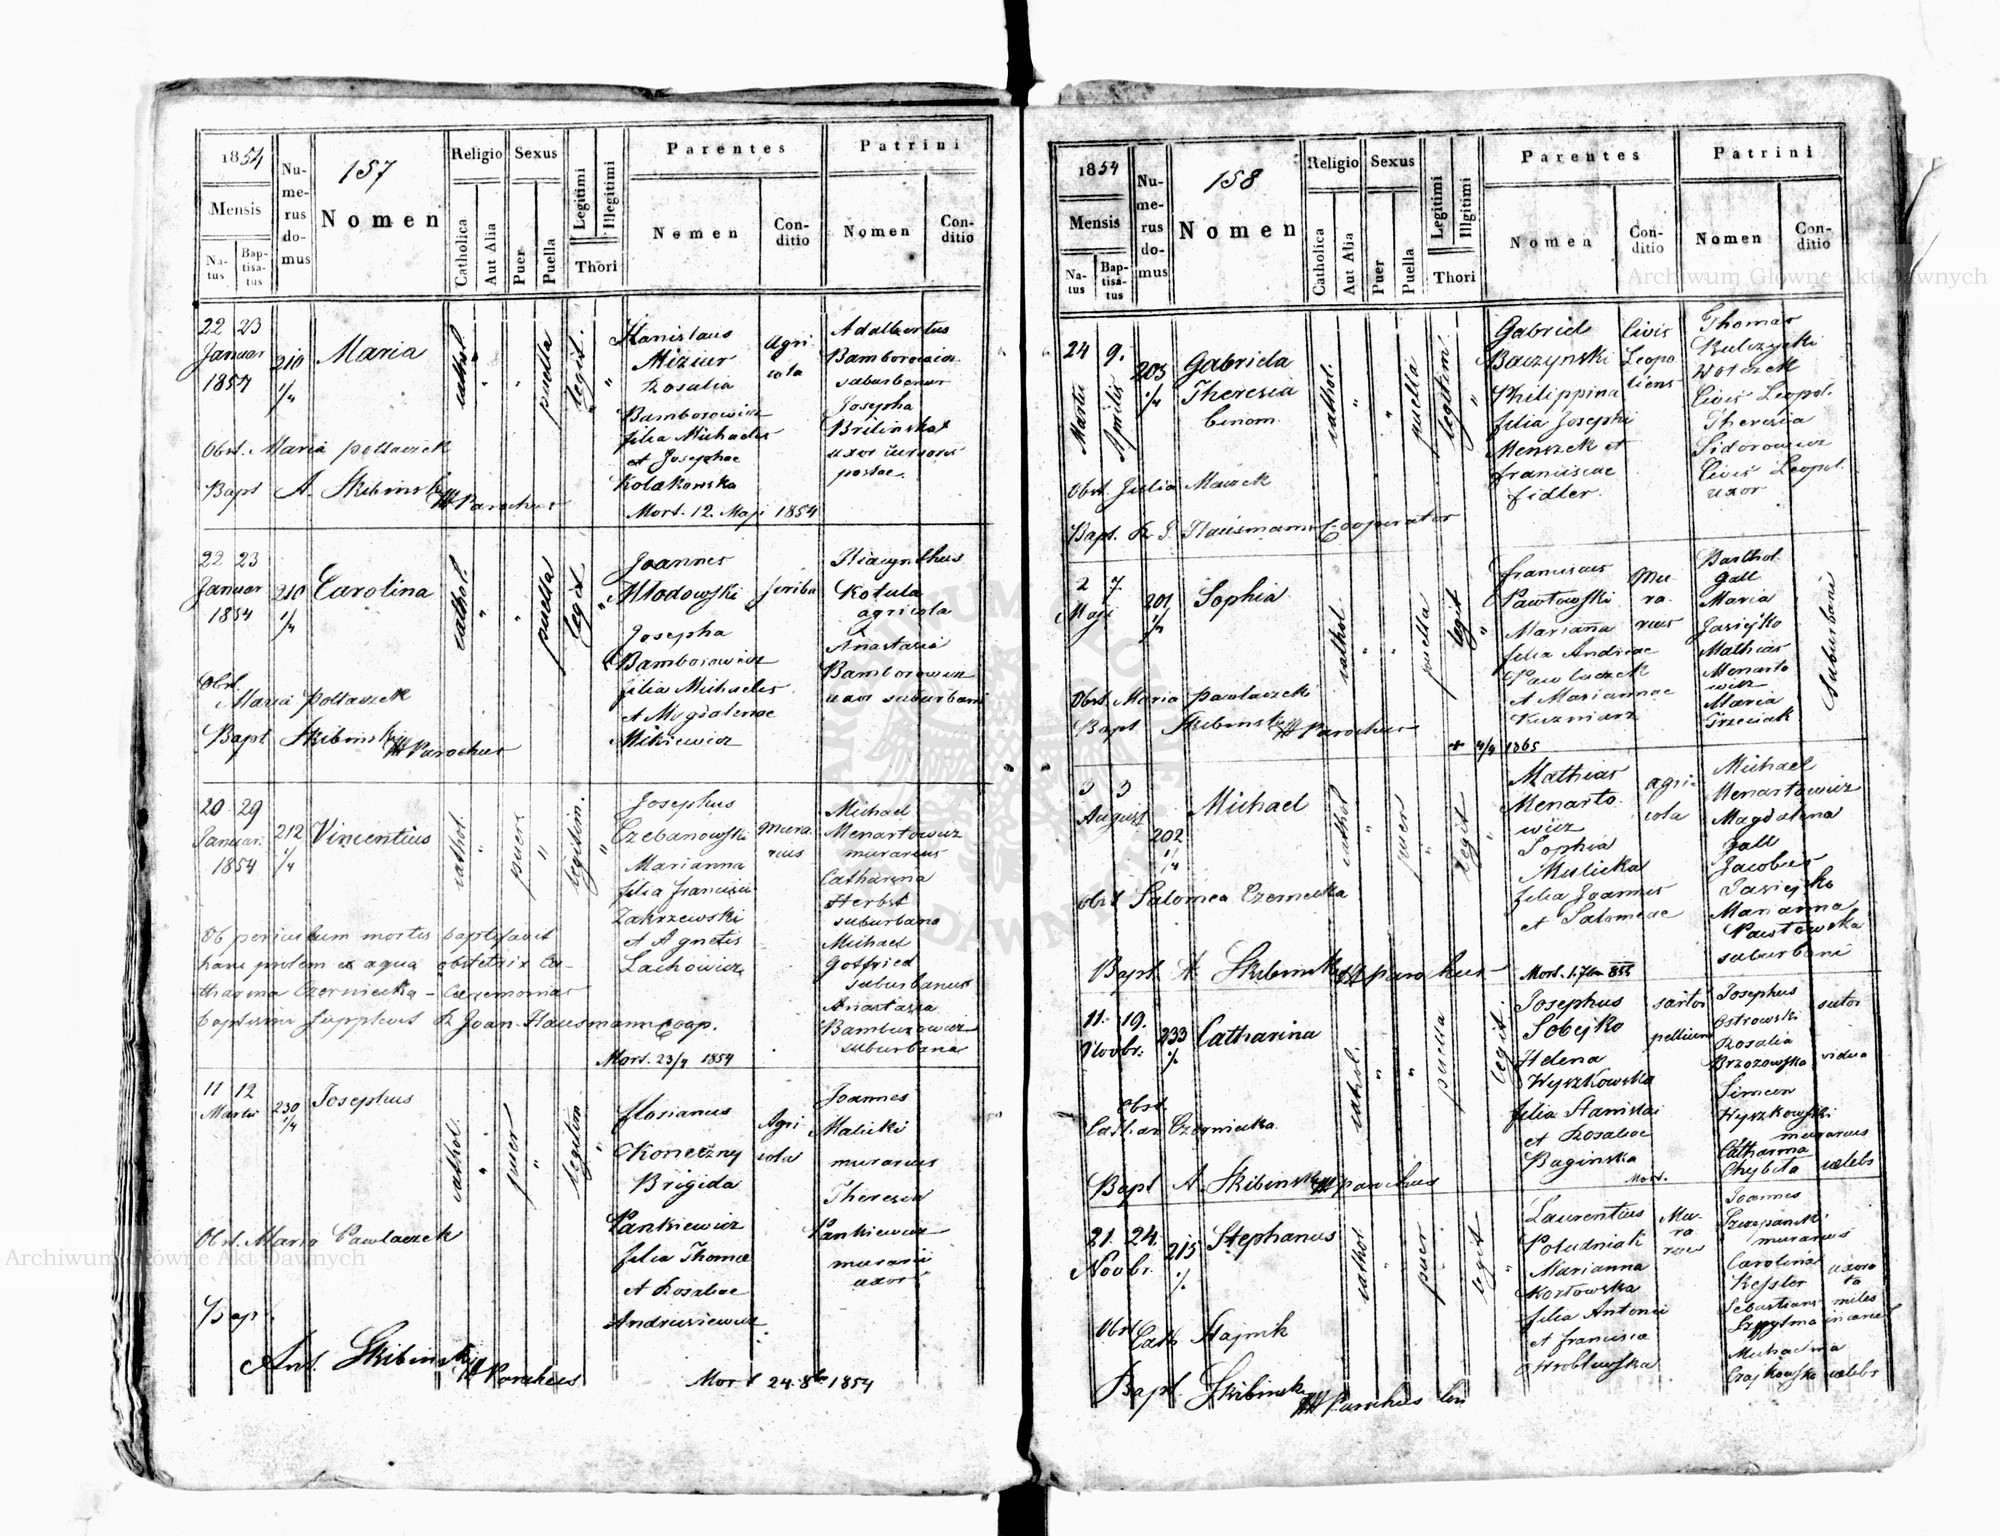 1854
157
Numerus domus
Nomen
Religio
Sexus
Parentes
Patrini
Mensis
Natus
Baptisatus
Catholica
Aut Alia
Puer
Puella
Legitimi
Illegitimi
Thori
Nomen
Conditio
Nomen
Conditio
22 23
Januar
1854
210
1/4
Maria
cathol.
"
"
puella
legit.
"
Stanislaus
Miziur
Rosalia
Bamborowicz
filia Michaelis
et Josephae
Kolakowska
Agri
cola
Adalbertus
Bamborowicz
suburbanus
Josepha
Brilinska
uxor
postae
Obst. Maria Pollaczek
Bapt A. Skibinski Parochus
Mort. 12. Maji 1854
22 23
Januar
1854
210
1/4
Carolina
cathol.
"
"
puella
legit
"
Joannes
Mlodowski
Josepha
Bamborowicz
filia Michaelis
et Magdalenae
Mikiewicz
scriba
Hiacynthus
Kotula
agricola
Anastasia
Bamborowicz
uxor suburbani
Obst
Maria Pollaczek
Bapt Skibinski Parochus
20 29
Januar.
1854
212
1/4
Vincentius
cathol.
"
puer
"
legitim.
"
Josephus
Czebanowski
Marianna
filia Francisci
Zakrzewski
et Agnetis
Lachowicz
mura
rius
Michael
Menartowicz
murarius
Catharina
Herbst
suburbana
Michael
Gotfried
suburbanus
Anastasia
Bamburowicz
suburbana
Ob periculum mortis baptisavit
hanc prolem ex aqua obstetrix Ca-
tharina Czerniecka – Ceremonias
baptismi supplevit R. Joan. Hausmann Coop.
Mort. 23/4 1854
11 12
Martii
230
1/4
Josephus
cathol.
"
puer
"
legitim
"
Florianus
Koneczny
Brigida
Pankiewicz
filia Thomae
et Rosaliae
Andrusiewicz
Agri
cola
Joannes
Malicki
murarius
Theresia
Pankiewicz
murarii
uxor
Obst. Maria Pawlaczek
Bap.
Ant. Skibinski Parochus
Mort 24. 8br 1854
1854
158
Numerus domus
Nomen
Religio
Sexus
Parentes
Patrini
Mensis
Natus
Baptisatus
Catholica
Aut Alia
Puer
Puella
Legitimi
Illigitimi
Thori
Nomen
Conditio
Nomen
Conditio
24 9.
Martii Aprilis
205
1/4
Gabriela
Theresia
binom.
cathol.
"
"
puella
legitim.
"
Gabriel
Baczynski
Philippina
filia Josephi
Menszek et
Franciscae
Fidler.
Civis
Leopo
liens
Thomas
Kulczycki
Civis Leopol.
Theresia
Sidorowicz
Civis Leopol.
uxor
Obst. Julia Maczek
Bapt. R. J. Hausmann Cooperator
2 7
Maji
201
1/4
Sophia
cathol.
"
"
puella
legit
"
Franciscus
Pawlowski
Marianna
filia Andreae
Pawlaczek
et Mariannae
Kuzniarz
Mu-
ra-
rius
Barthol.
Gall
Maria
Jasiejko
Mathias
Menarto
wicz
Maria
Grzeciak
Suburbani
Obst. Maria Pawlaczek
Bapt Skibinski Parochus
+ 4/4 1865
3 3
August
202
1/4
Michael
cathol
"
puer
"
legit
"
Mathias
Menarto-
wicz
Sophia
Mulicka
filia Joannis
et Salomeae
agri-
cola
Michael
Menartowicz
Magdalena
Gall
Jacobus
Jasiejko
Marianna
Pawlowska
suburbani
Obst Salomea Czerniecka
Bapt. A. Skibinski Parochus
11. 19.
Novbr.
233
1/4
Catharina
cathol.
"
"
puella
legit.
Josephus
Sobejko
Helena
Wyszkowska
filia Stanislai
et Rosaliae
Baginska
sartor
pellium
Josephus
Ostrowski
Rosalia
Brzozowska
Simeon
Wyszkowski
murarius
Catharina
Chybita
sutor
vidua
caelebs
Obst.
Cathar. Czerniecka.
Bapt A. Skibinski parochus
Mort.
21. 24.
Novbr.
215
1/4
Stephanus
cathol.
"
puer
"
legit
"
Laurentius
Poludniak
Marianna
Kozlowska
filia Antonii
et Franciscae
Wroblewska
Mu-
ra-
rius
Joannes
Szczepanski
murarius
Carolina
Kessler
Sebastianus
Czajkowska
uxora
ta
miles
caelebs
Obst
Cath Hajnik
Bapt. Skibinski Parochus
Archiwum Główne Akt Dawnych
Archiwum Główne Akt Dawnych